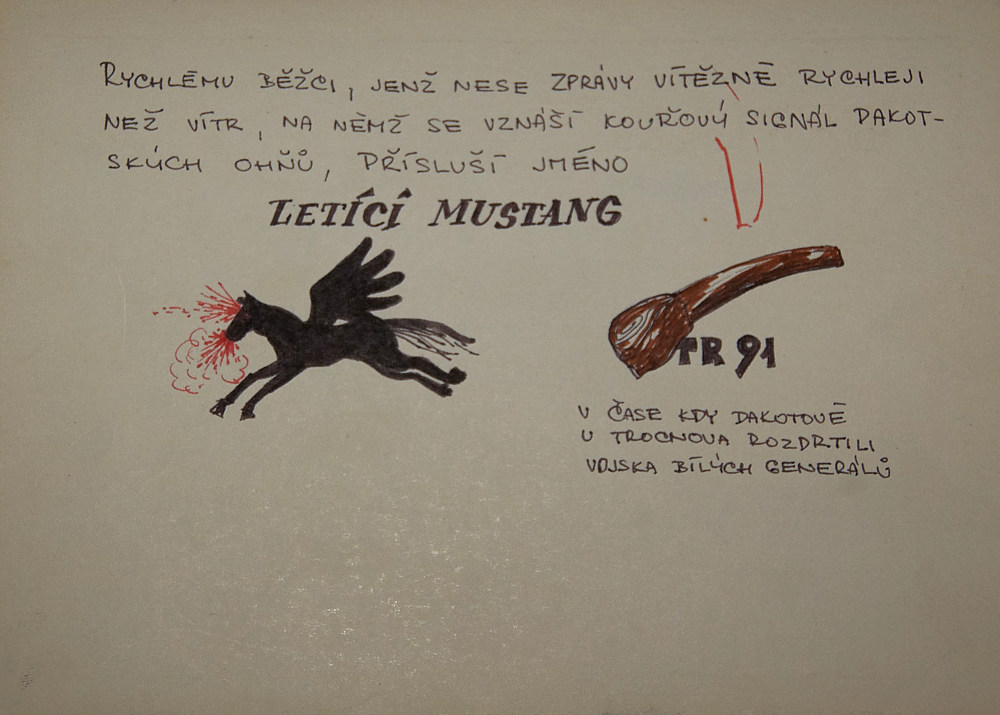 RYCHLÉMU BĚŽCI, JENŽ NESE ZPRÁVY VÍTĚZNÉ RYCHLEJI
NEŽ VÍTR, NA NĚMŽ SE VZNÁŠÍ KOUŘOVÝ SIGNÁL DAKOT-
SKÝCH OHŇŮ, PŘÍSLUŠÍ JMÉNO
LETÍCÍ MUSTANG
TR 91
V ČASE KDY DAKOTOVÉ
U TROCNOVA ROZDRTILI
VOJSKA BÍLÝCH GENERÁLŮ